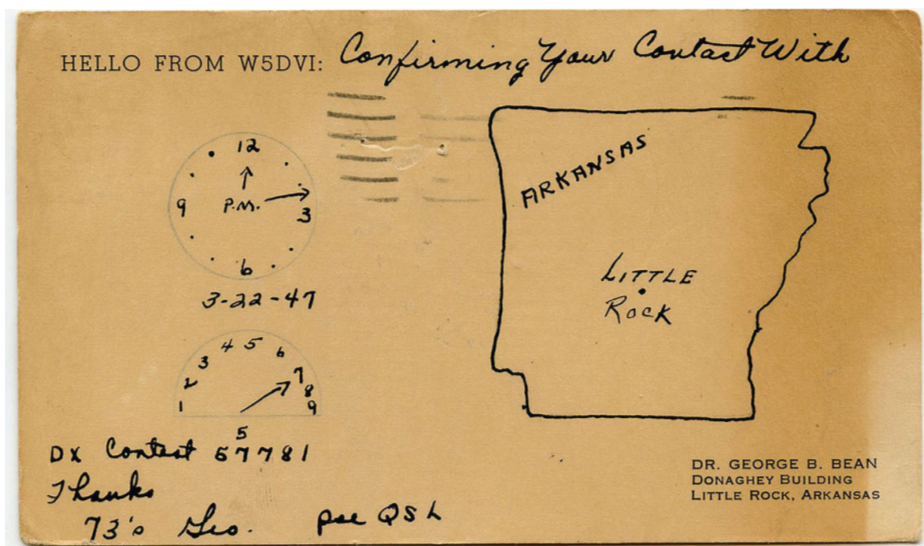 HELLO FROM W5DVI: Confirming Your Contact With
ARKANSAS
12
P.M.
9
3
6
LITTLE
ROCK
3-22-47
1 2 3 4 5 6 7 8 9
5
DX Contest 57781
Thanks
73's Geo. pse QSL
DR. GEORGE B. BEAN
DONAGHEY BUILDING
LITTLE ROCK, ARKANSAS